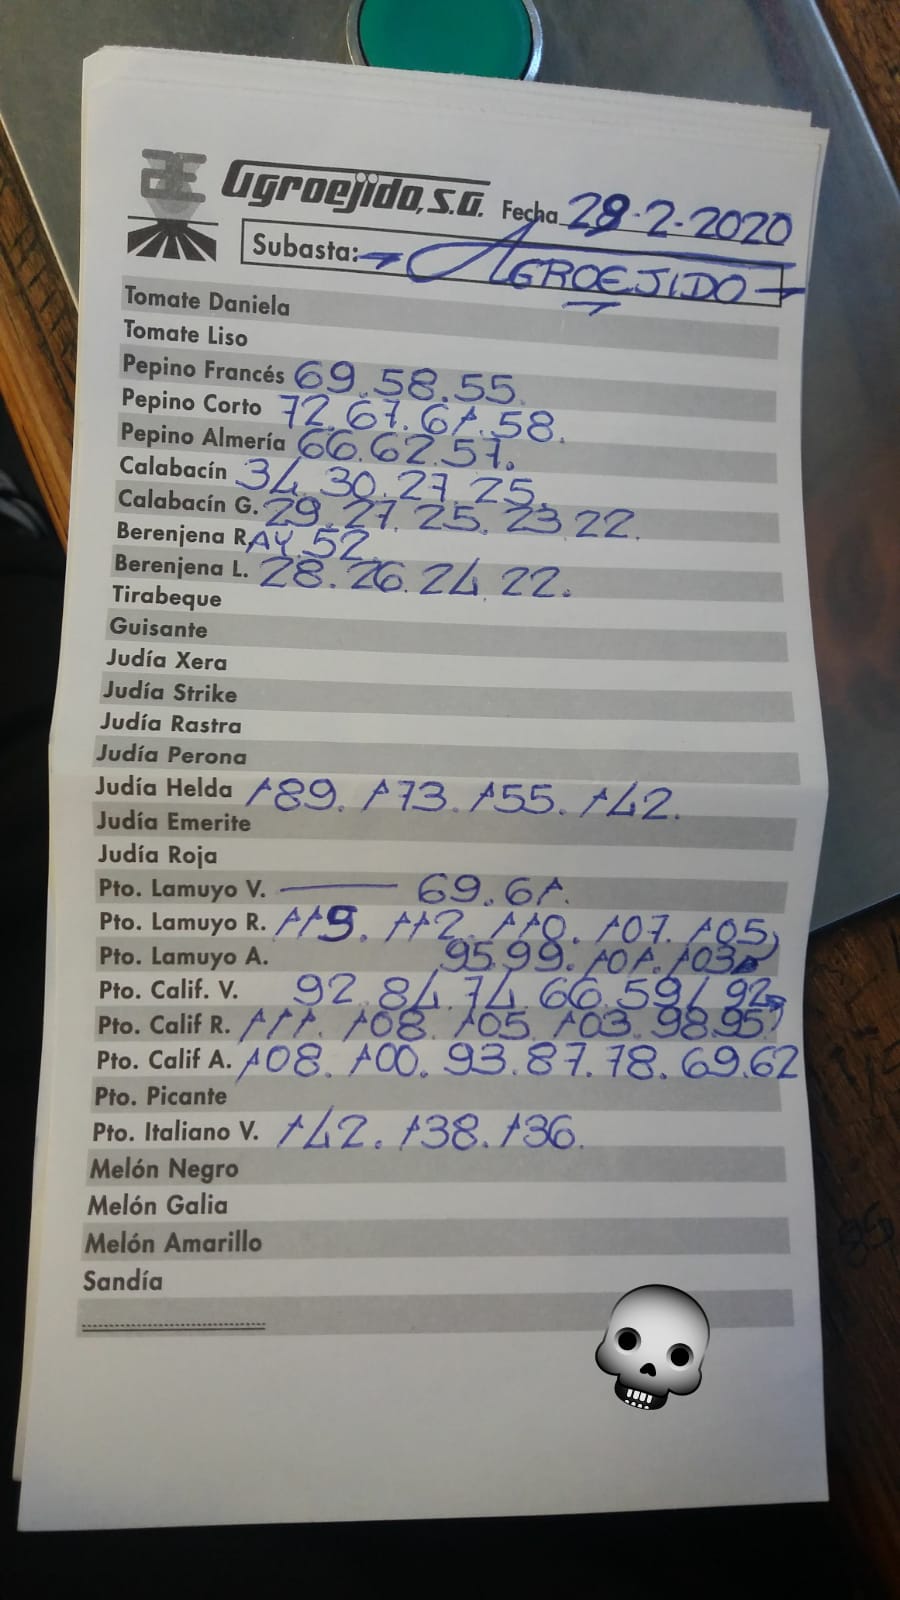 Agroejido, S.A. Fecha 29-2-2020
Subasta: AGROEJIDO
Tomate Daniela
Tomate Liso
Pepino Francés 69.58.55.
Pepino Corto 72.67.61.58.
Pepino Almería 66.62.57.
Calabacín 34.30.27.25.
Calabacín G. 29.27.25.23.22.
Berenjena RAY.52.
Berenjena L. 28.26.24.22.
Tirabeque
Guisante
Judía Xera
Judía Strike
Judía Rastra
Judía Perona
Judía Helda 189.173.155.142.
Judía Emerite
Judía Roja
Pto. Lamuyo V. 69.61.
Pto. Lamuyo R. 119.112.110.107.105
Pto. Lamuyo A. 95.99.101.103
Pto. Calif. V. 92.84.74.66.59/92
Pto. Calif R. 111.108.105.103.98.95
Pto. Calif A. 108.100.93.87.78.69.62
Pto. Picante
Pto. Italiano V. 142.138.136.
Melón Negro
Melón Galia
Melón Amarillo
Sandía